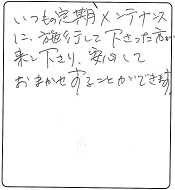 いつもの定期メンテナンス
に、施行して下さった方が
来て下さり、安心して
おまかせすることができます。